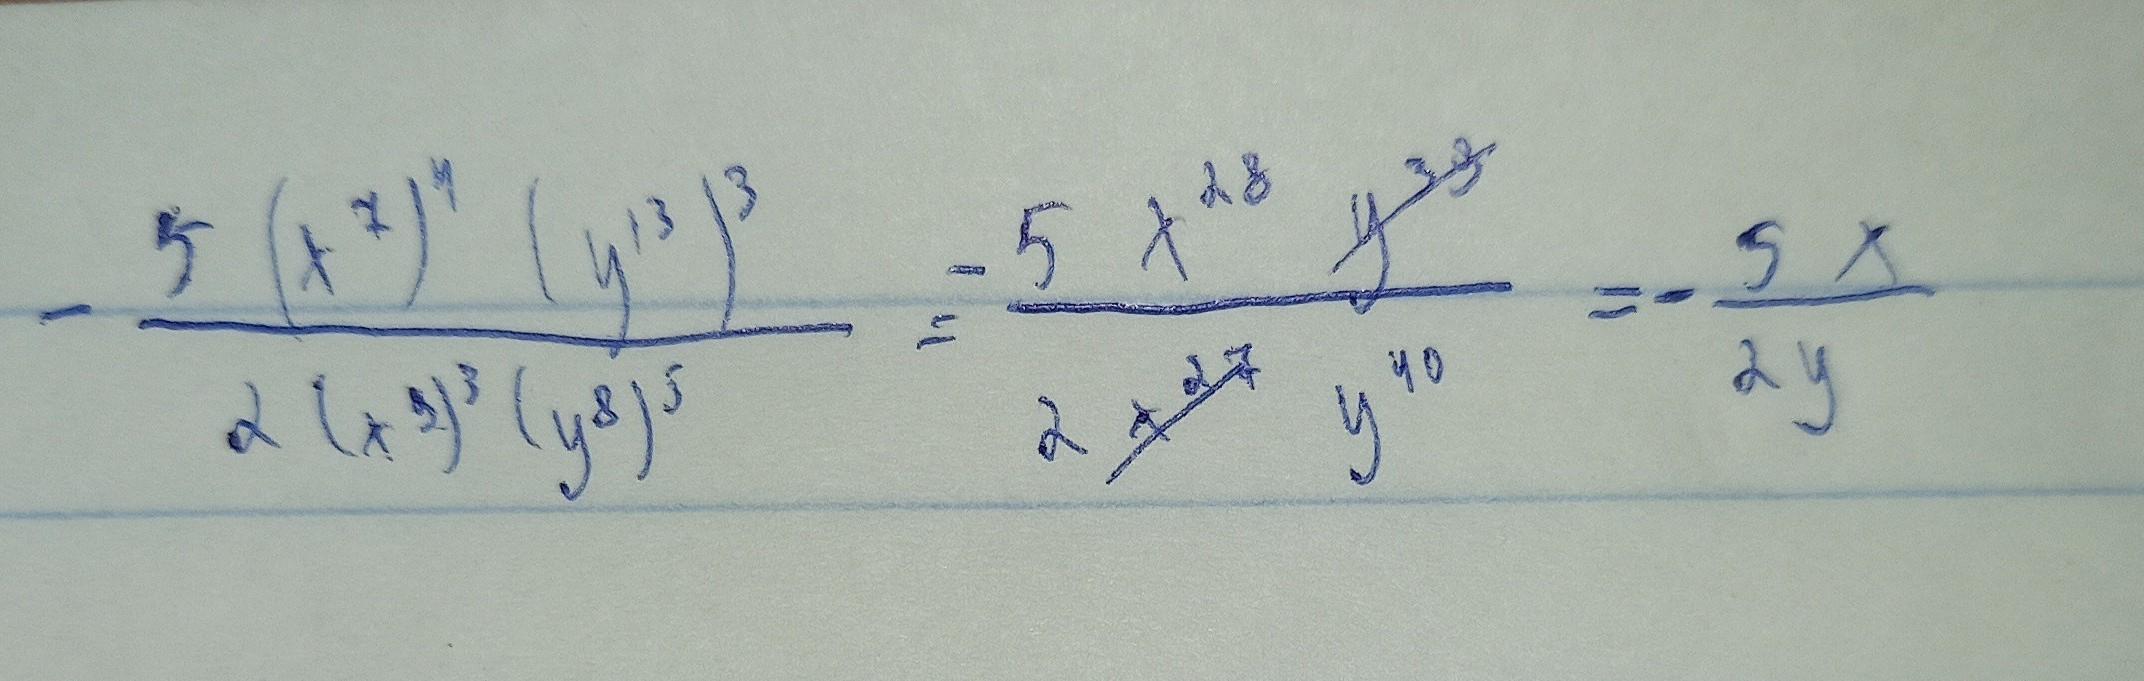 - \frac{5 (x^7)^4 (y^{13})^3}{2 (x^9)^3 (y^8)^5} = - \frac{5 x^{28} y^{39}}{2 x^{27} y^{40}} = - \frac{5 x}{2 y}